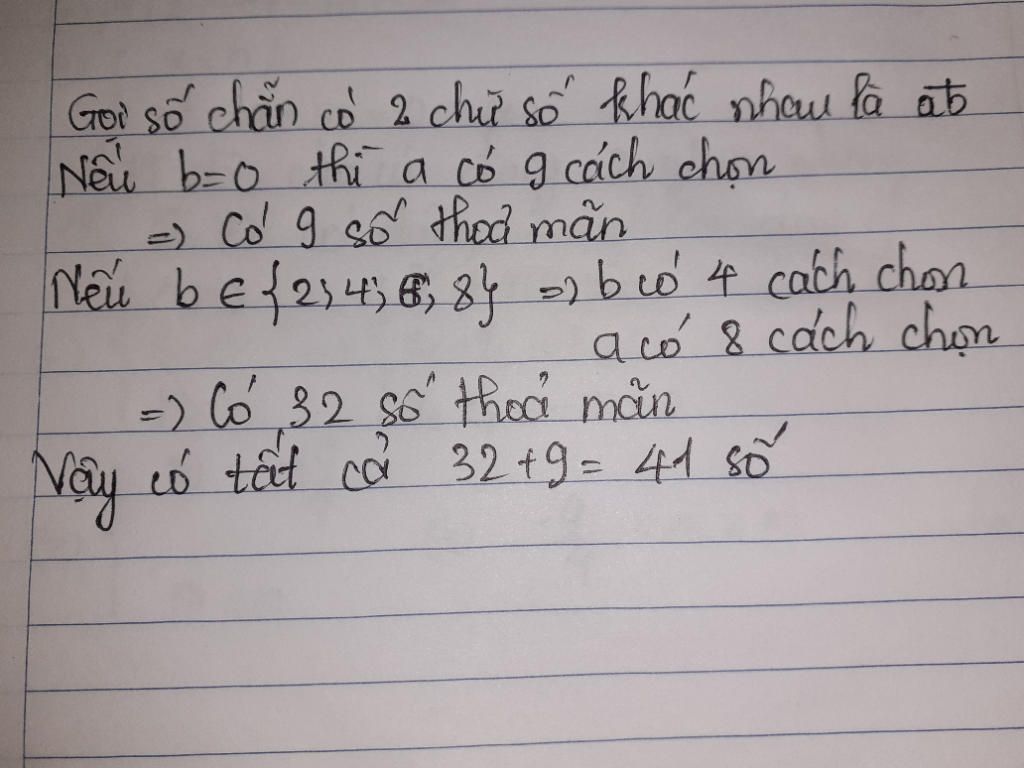 Gọi số chẵn có 2 chữ số khác nhau là ab
Nếu b=0 thì a có 9 cách chọn
=> Có 9 số thoả mãn
Nếu b ∈ {2; 4; 6; 8} => b có 4 cách chọn
a có 8 cách chọn
=> Có 32 số thoả mãn
Vậy có tất cả 32+9= 41 số